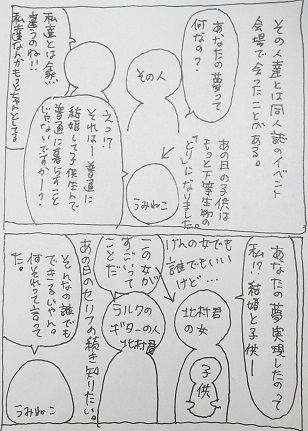 その人達とは同人誌のイベント
会場で会ったことがある。
あなたの夢って
何なの?
その人
私達とは全然
違うのね!!
私達なんかもっとちゃんとしてる
えっ!?
それはー普通に
結婚して子供生んで
普通に暮らすこと
じゃないですかー?
あの日の子供は
もっと下等生物の
「とり」になりました。
うみねこ
あなたの夢実現したのって
私!?結婚と子供ー
北村君
の女
子供
けんの女でも
誰でもいい
けど…
この女が
すごいって
ことだ
ラルクの
ギターの人
北村君
あの日のセリフの続き知りたい。
そんなの誰でも
できるじゃん。
何それって言って
た。
うみねこ